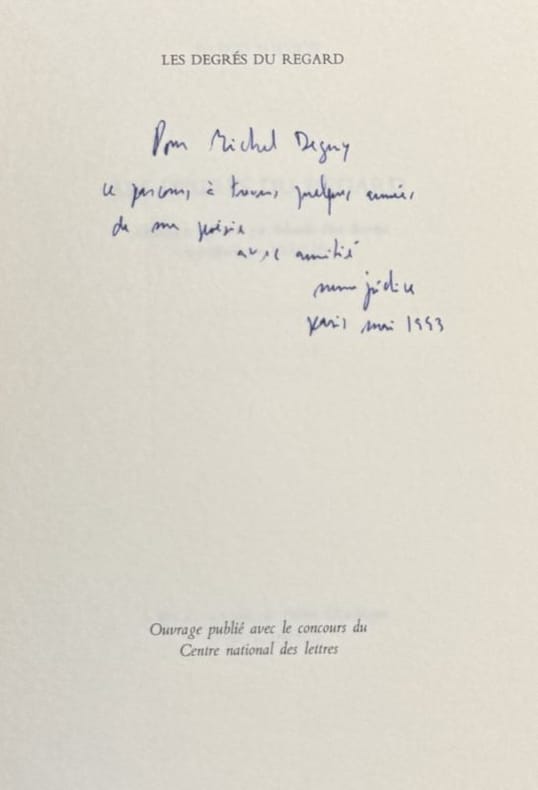 LES DEGRÉS DU REGARD
Pour Michel Deguy
ce parcours à travers quelques années
de ma poésie
avec amitié
nuno júdice
Paris mai 1993
Ouvrage publié avec le concours du
Centre national des lettres